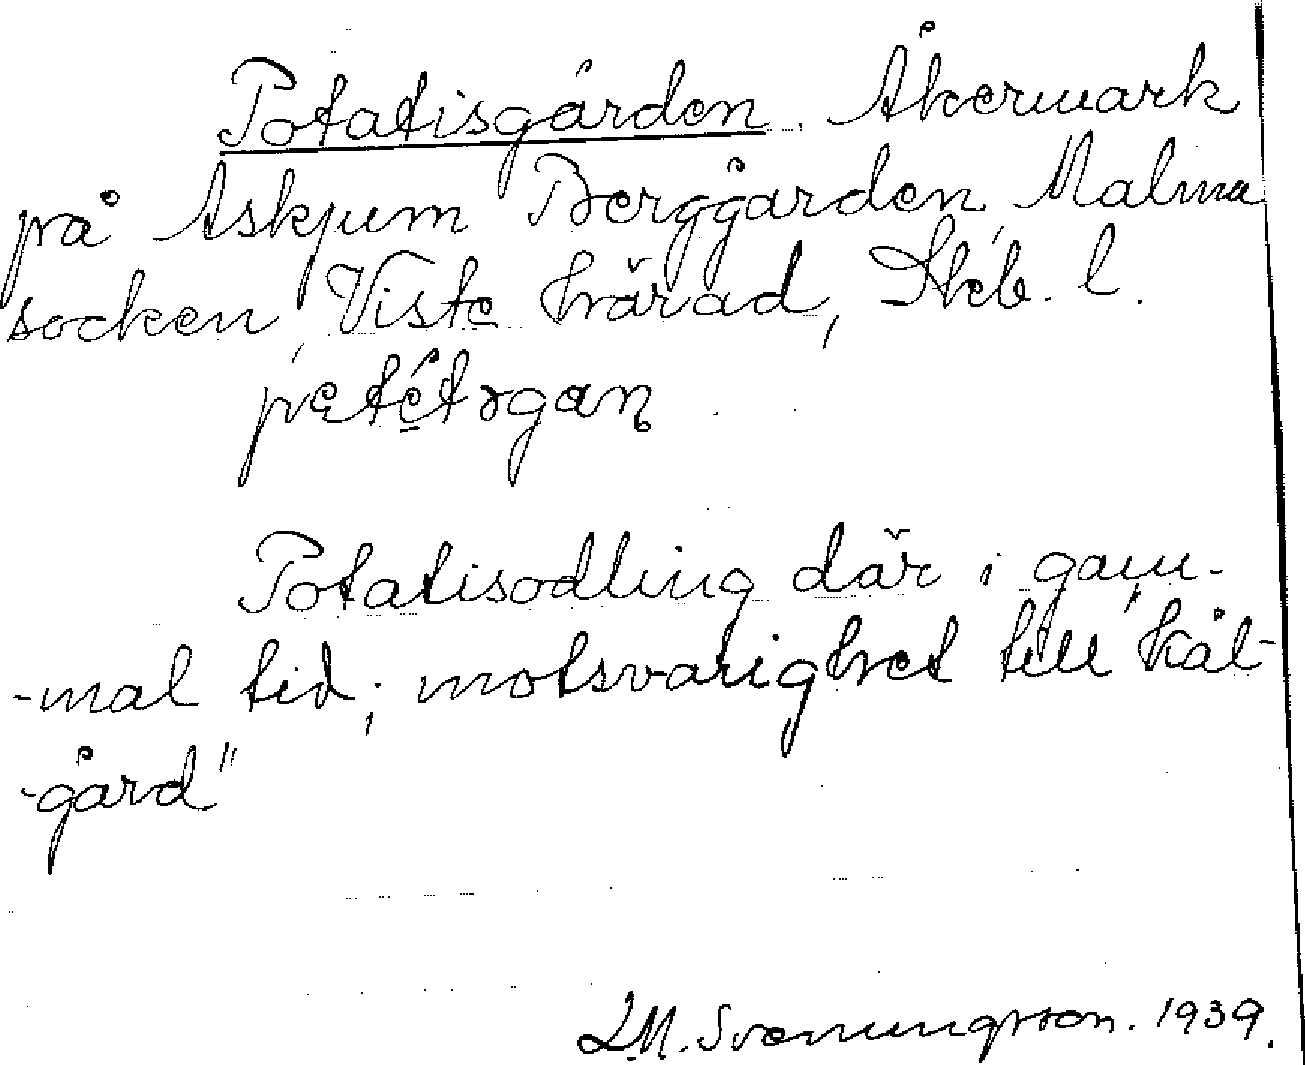 Potatisgården. Åkermark
på Askjum Berggården, Malma
socken, Viste härad, Skb. l.
Potatisodling där i gam-
-mal tid; motsvarighet till "kål-
-gård"
L.M. Svenungsson. 1939.